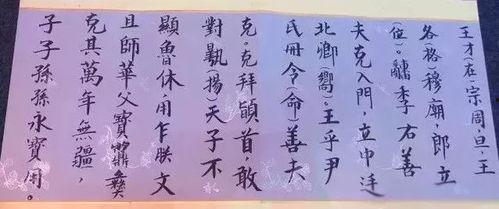 王才(在)宗周,旦,王
各(格)穆廟,郎立
(位)。季右善
夫克入門,立中廷
北卿(嚮)。王乎尹
民冊令(命)善夫
克。克拜首,敢
對(揚)天子不
顯魯休,用乍朕文
且師華父寶彝
克其萬年無疆,
子子孫孫永寶用。